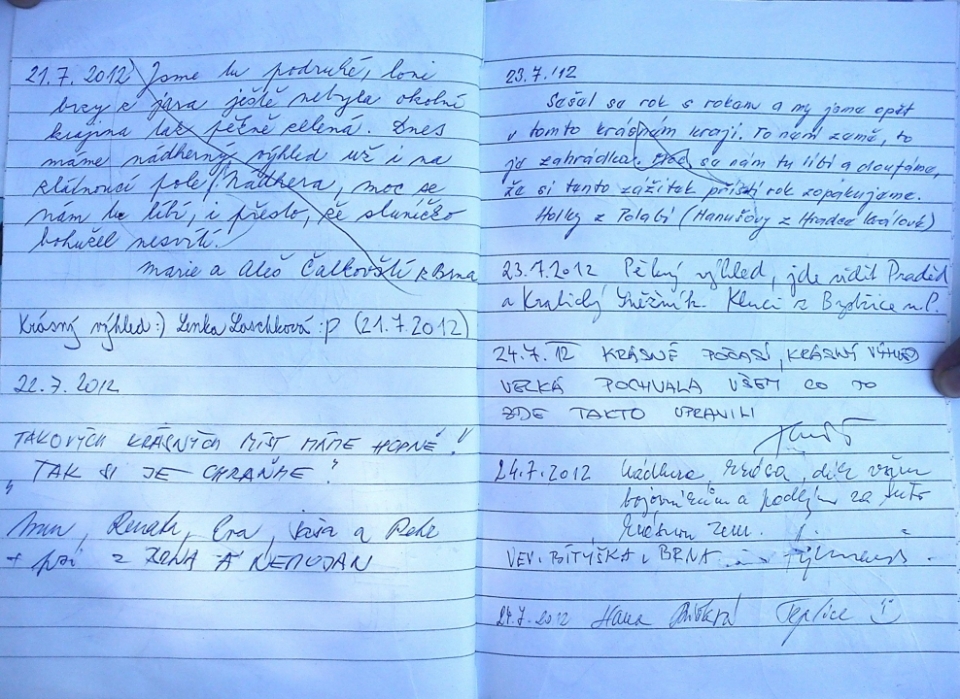 21.7.2012 Jsme tu podruhé, loni
brzy z jara ještě nebyla okolní
krajina tak pěkně zelená. Dnes
máme nádherný výhled už i na
pole. Nádhera, moc se
nám tu líbí, i přesto, že sluníčko
bohužel nesvítí.
Marie a Aleš z Brna
Krásný výhled :) Lenka Laschková :p (21.7.2012)
22.7.2012
TAKOVÝCH KRÁSNÝCH MÍST MÁME HODNĚ!
"TAK SI JE CHRAŇME"
Renata, Eva, a
+ psi z BRNA A NEMOJAN
23.7.'12
Sešel se rok s rokem a my jsme opět
v tomto krásném kraji. To není země, to
je zahrádka. Moc se nám tu líbí a doufáme,
že si tento zážitek příští rok zopakujeme.
Holky z Polabí (Hanušovy z Hradce Králové)
23.7.2012 Pěkný výhled, jde vidět Praděd
a Kralický Sněžník. Kluci z Bystřice n.P.
24.7.12 KRÁSNÉ POČASÍ, KRÁSNÝ VÝHLED
VELKÁ POCHVALA VŠEM CO TO
ZDE TAKTO UPRAVILI
24.7.2012 Nádhera, dík všem
bojovníkům a za tuto
zem.
VEV. BITÝŠKA u BRNA
24.7.2012 Hana Teplice